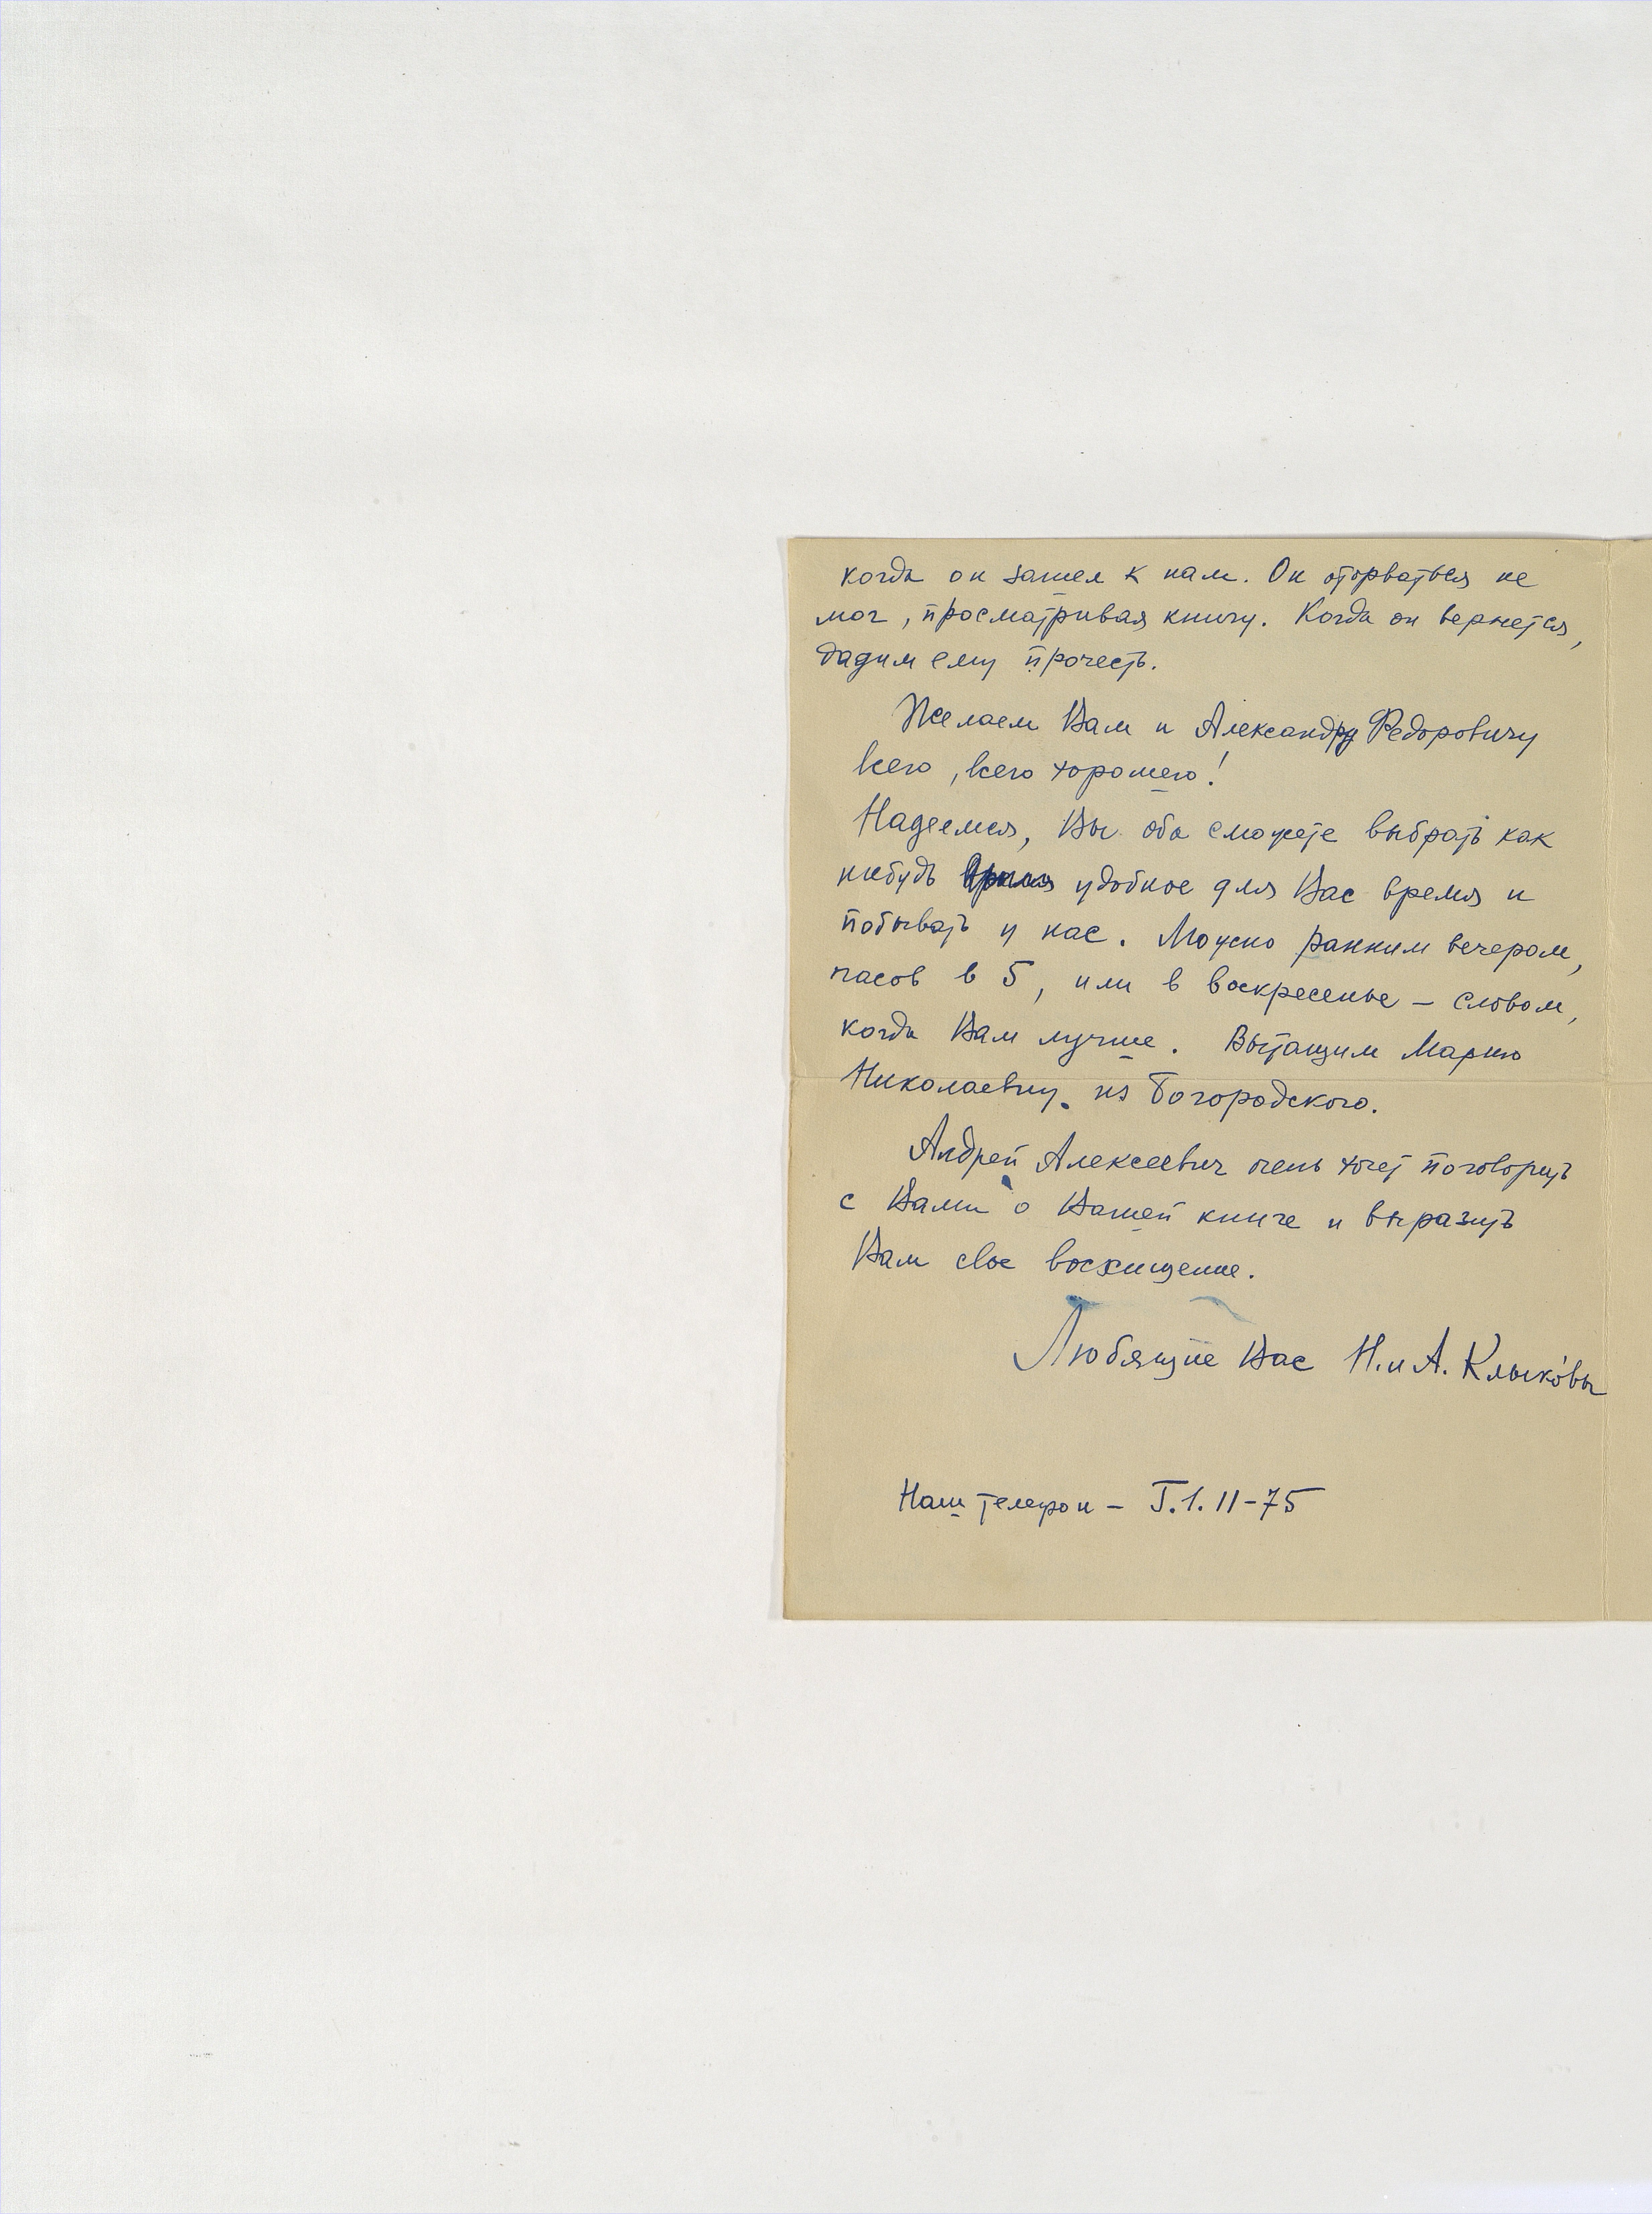 когда он зашел к нам. Он оторваться не
мог, просматривая книгу. Когда он вернется,
дадим ему прочесть.
Желаем Вам и Александру Федоровичу
всего, всего хорошего!
Надеемся, Вы оба сможете выбрать как
нибудь удобное для Вас время и
побывать у нас. Можно ранним вечером,
часов в 5, или в воскресенье – словом,
когда Вам лучше. Вытащим Марию
Николаевну из Богородского.
Андрей Алексеевич очень хочет поговорить
с Вами о Вашей книге и выразить
Вам свое восхищение.
Любящие Вас Н. и А. Клыковы
Наш телефон – Г.1.11-75